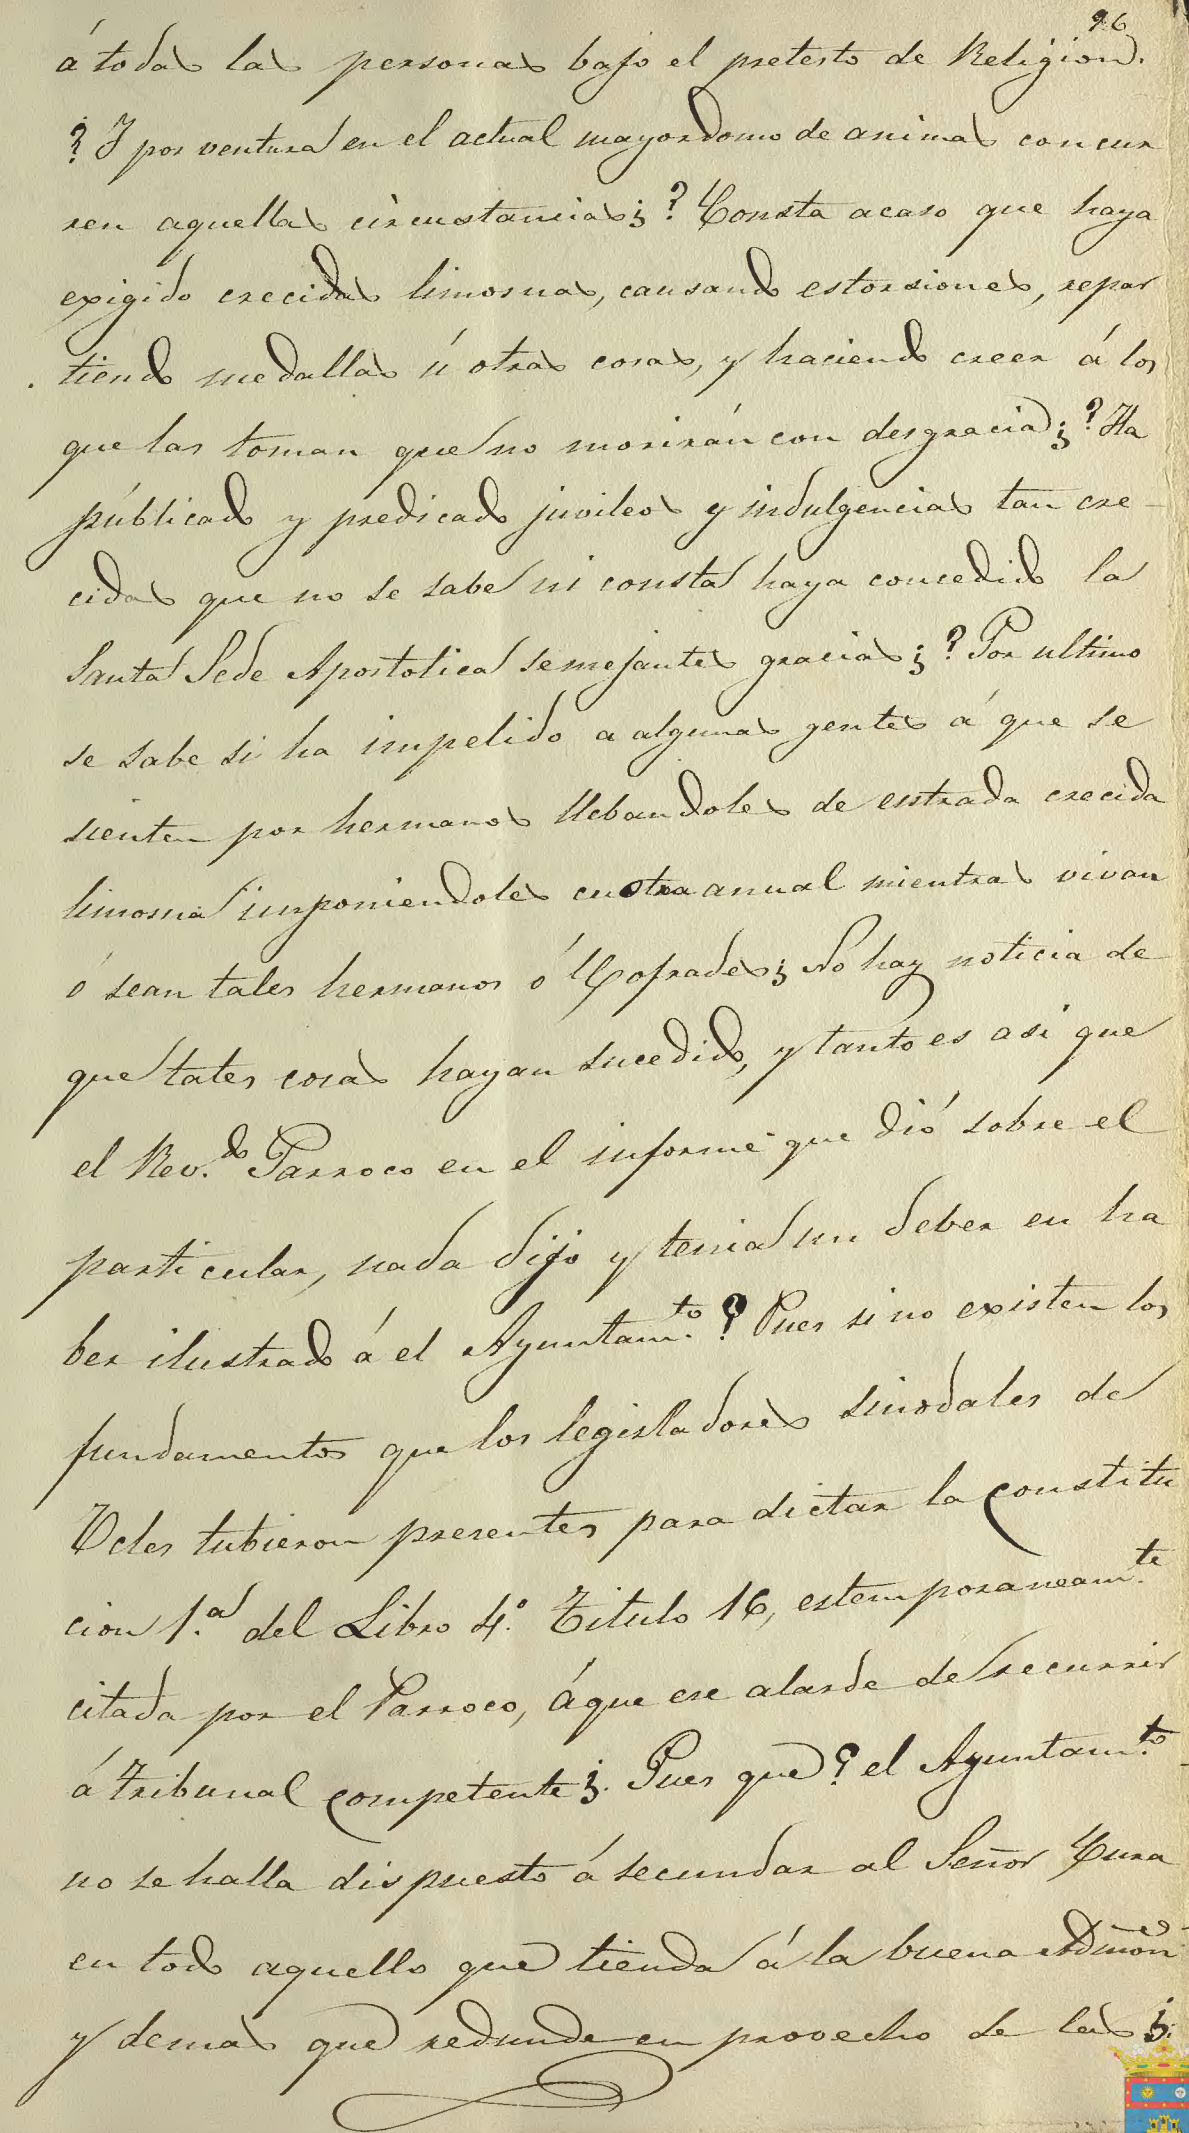 96
á todas las personas bajo el pretesto de Religion.
? Y por ventura en el actual mayordomo de animas concur
ren aquellas circustancias¿ ? Consta acaso que haya
exigido crecidas limosnas, causando estorsiones, repar
tiendo medallas ú otras cosas, y haciendo creer á los
que las toman que no morirán con desgracia¿ ? Ha
públicado y predicado juvileos y indulgencias tan cre-
cidas que no se sabe ni consta haya concedido la
Santa Sede Apostolica semejantes gracias¿ ? Por ultimo
se sabe si ha impelido a algunas gentes á que se
sienten por hermanos llebandoles de entrada crecida
limosna imponiendoles cuotra anual mientras vivan
ó sean tales hermanos ó Cofrades¿ No hay noticia de
que tales cosas hayan sucedido, y tanto es asi que
el Rev.do Parroco en el informe que dió sobre el
particular, nada dijo y tenia un deber en ha
ber ilustrado á el Ayuntam.to ? Pues si no existen los
fundamentos que los legisladores sinodales de
Ucles tubieron presentes para dictar la constitu
cion 1.a del Libro 4.o Titulo 16, estemporaneam.te
citada por el Parroco, á que ese alarde de recurrir
á tribunal competente¿. Pues que ? el Ayuntam.to
no se halla dispuesto á secundar al Señor Cura
en todo aquello que tienda á la buena Admon
y demas que redunde en provecho de las ¿.